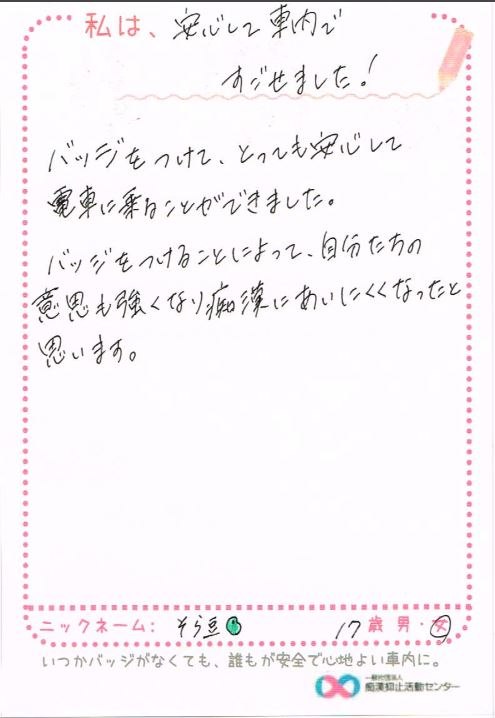 私は、安心して車内で
すごせました!
バッジをつけて、とっても安心して
電車に乗ることができました。
バッジをつけることによって、自分たちの
意思も強くなり痴漢にあいにくくなったと
思います。
ニックネーム: そら豆 17歳 男・女
いつかバッジがなくても、誰もが安全で心地よい車内に。
一般社団法人
痴漢抑止活動センター